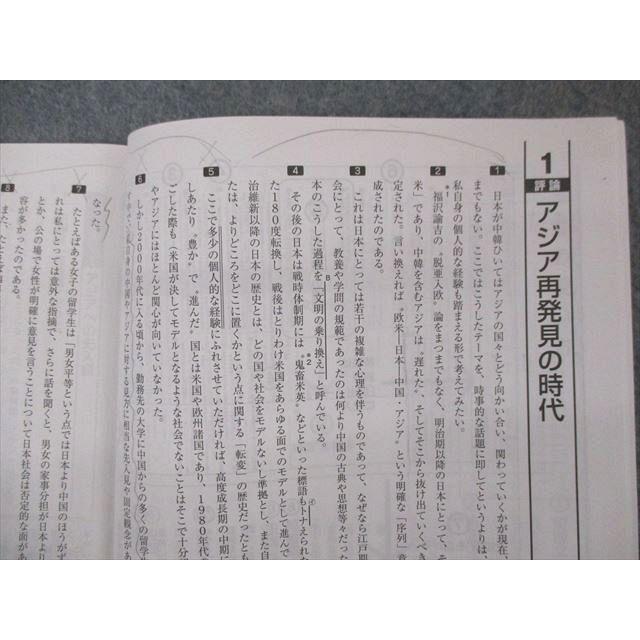 1
評論
アジア再発見の時代
1
日本が中韓ひいてはアジアの国々とどう向かい合い、関わっていくかが現在、
までもない。ここではこうしたテーマを、時事的な話題に即してというよりは、
私自身の個人的な経験も踏まえる形で考えてみたい。
2
*福沢諭吉の〝脱亜入欧〟論をまつまでもなく、明治期以降の日本にとって、そ
米〟であり、中韓を含むアジアは〝遅れた〟、そしてそこから抜け出ていくべき
定された。言い換えれば〝欧米―日本―中国・アジア〟という明確な「序列」意
成されたのである。
3
これは日本にとっては若干の複雑な心理を伴うものであって、なぜなら江戸期
会にとって、教養や学問の規範であったのは何より中国の古典や思想等々だった
B
本のこうした過程を「文明の乗り換え」と呼んでいる。
4
*2
その後の日本は戦時体制期には〝鬼畜米英〟などといった標語もトナえられた
イ
た180度転換し、戦後はとりわけ米国をあらゆる面でのモデルとして進んで
治維新以降の日本の歴史とは、どの国や社会をモデルないし準拠とし、また自
たは、よりどころをどこに置くかという点に関する「転変」の歴史だったとも
5
ここで多少の個人的な経験にふれさせていただければ、高度成長期の中期に
しあたり〝豊か〟で〝進んだ〟国とは米国や欧州諸国であり、1980年代
ごした際も（米国が決してモデルとなるような社会でないことはそこで十分
やアジアにはほとんど関心が向いていなかった。
6
しかし2000年代に入る頃から、勤務先の大学に中国からの多くの留学生
私自身の中国やアジアに対する見方に相当な先入見や固定観念があ
なった。
7
たとえばある女子の留学生は「男女平等という点では日本より中国のほうがず
れは私にとっては意外な指摘で、さらに話を聞くと、男女の家事分担が日本より
とか、公の場で女性が明確に意見を言うことについて日本社会は否定的な面があ
容が多かったのである。
8
また、